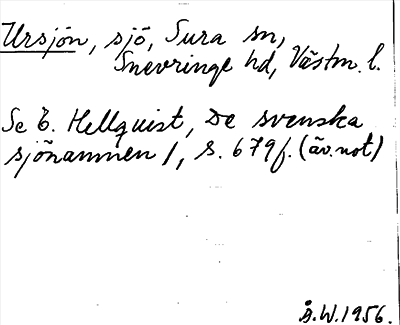 Ursjön, sjö, Sura sn,
Snevringe hd, Västm. l.
Se E. Hellquist, De svenska
sjönamnen 1, s. 679f. (äv. not)
Å.W. 1956.